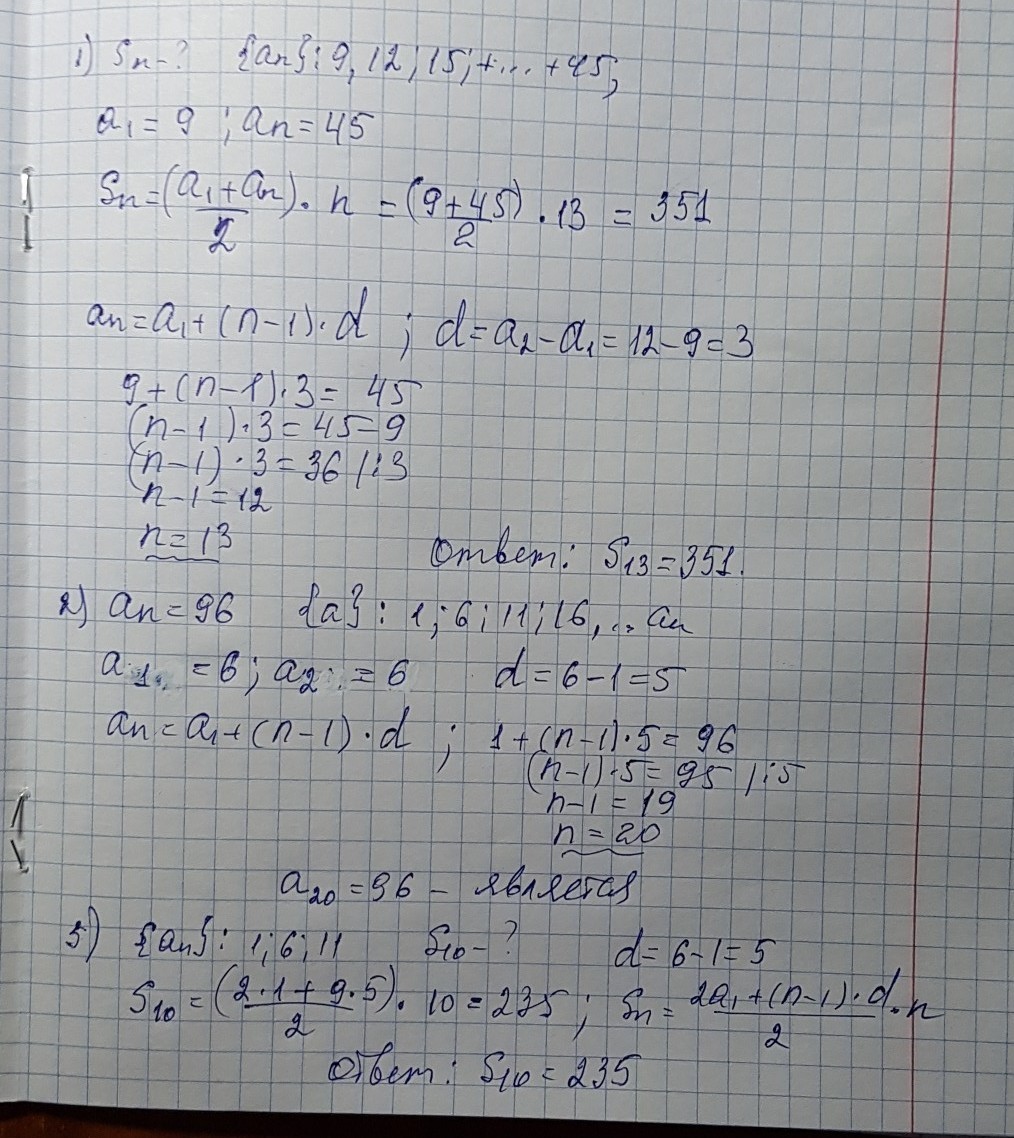 1) Sn-? {an}: 9, 12; 15; +... +45;
a₁ = 9 ; an = 45
Sn = (a₁ + an)/2 · n = (9+45)/2 · 13 = 351
an = a₁ + (n-1)·d ; d = a₂ - a₁ = 12 - 9 = 3
9 + (n-1)·3 = 45
(n-1)·3 = 45 = 9
(n-1)·3 = 36 /:3
n-1 = 12
n = 13
Ответ: S₁₃ = 351.
2) an = 96 {a}: 1; 6; 11; 16, ... an
a₁ = 6; a₂ = 6 d = 6 - 1 = 5
an = a₁ + (n-1)·d ; 1 + (n-1)·5 = 96
(n-1)·5 = 95 /:5
n-1 = 19
n = 20
a₂₀ = 96 - является
3) {an}: 1; 6; 11 S₁₀ - ? d = 6-1 = 5
S₁₀ = (2·1 + 9·5)/2 · 10 = 235 ; Sn = 2a₁ + (n-1)·d/2 · n
Ответ: S₁₀ = 235